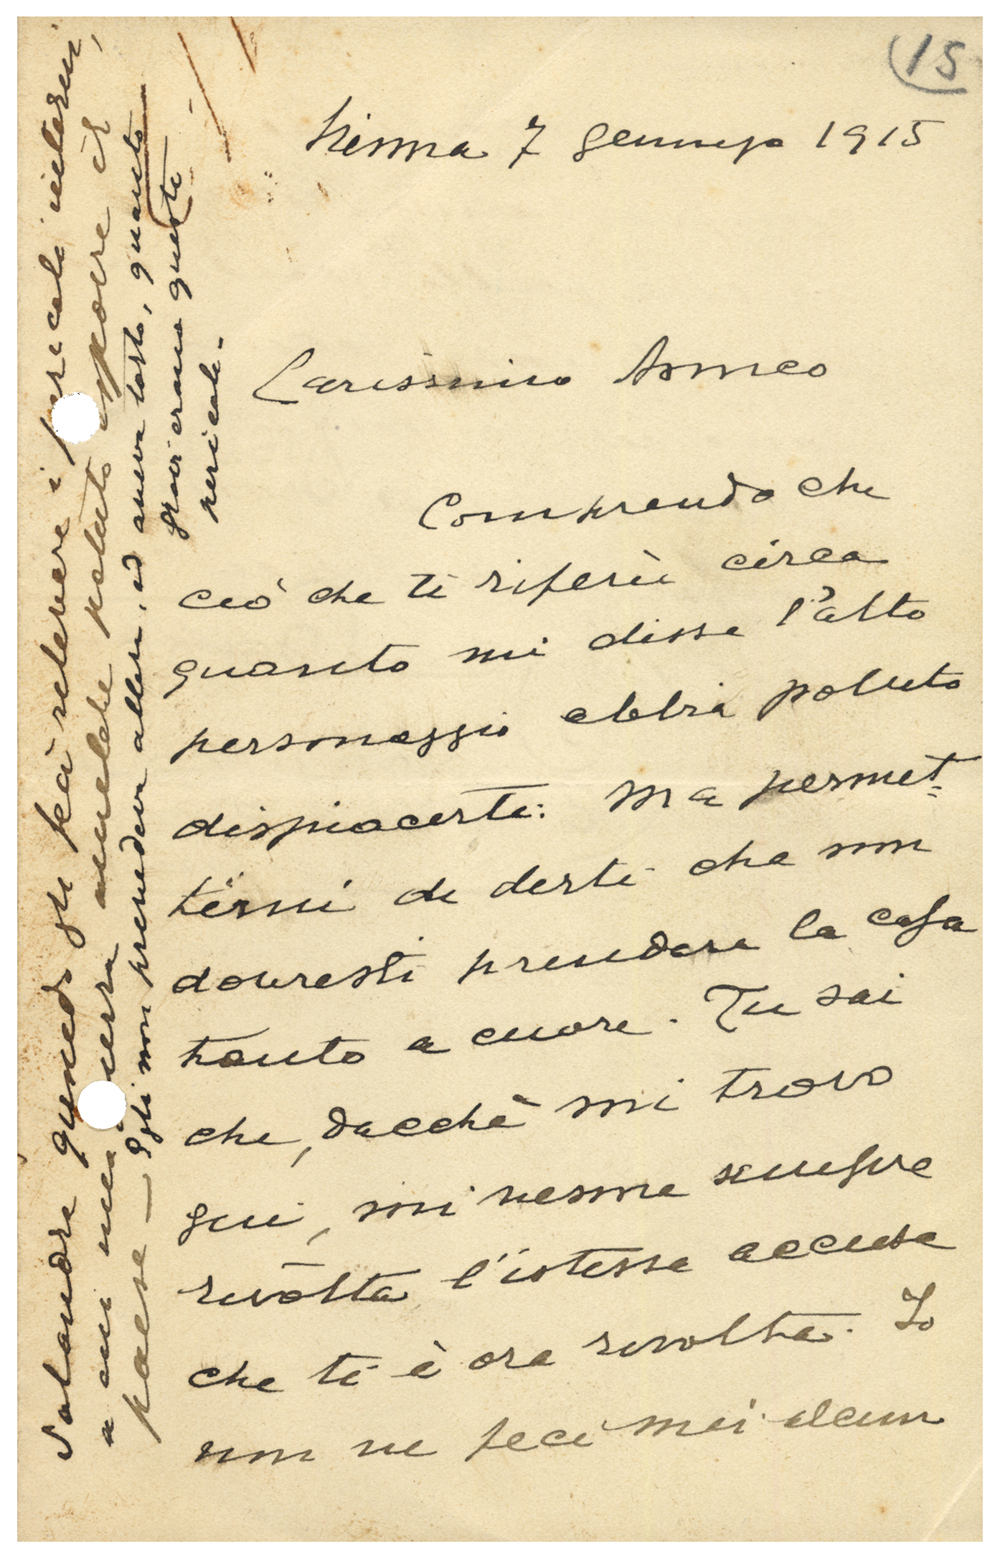 15
Vienna 7 gennaio 1915
Carissimo Romeo
Comprendo che
ciò che ti riferii circa
quanto mi disse l'alto
personaggio abbia potuto
dispiacerti. Ma permet-
termi di dirti che non
dovresti prendere la cosa
tanto a cuore. Tu sai
che, dacchè mi trovo
qui, mi venne sempre
rivolta l'istessa accusa
che ti è ora rivolta. Io
non ne feci mai alcun
Salandra quando gli feci rilevare i pericoli interni
a cui una guerra avrebbe potuto esporre il
paese — Egli non prevedeva allora, ad
quanto
gravi erano questi
pericoli.